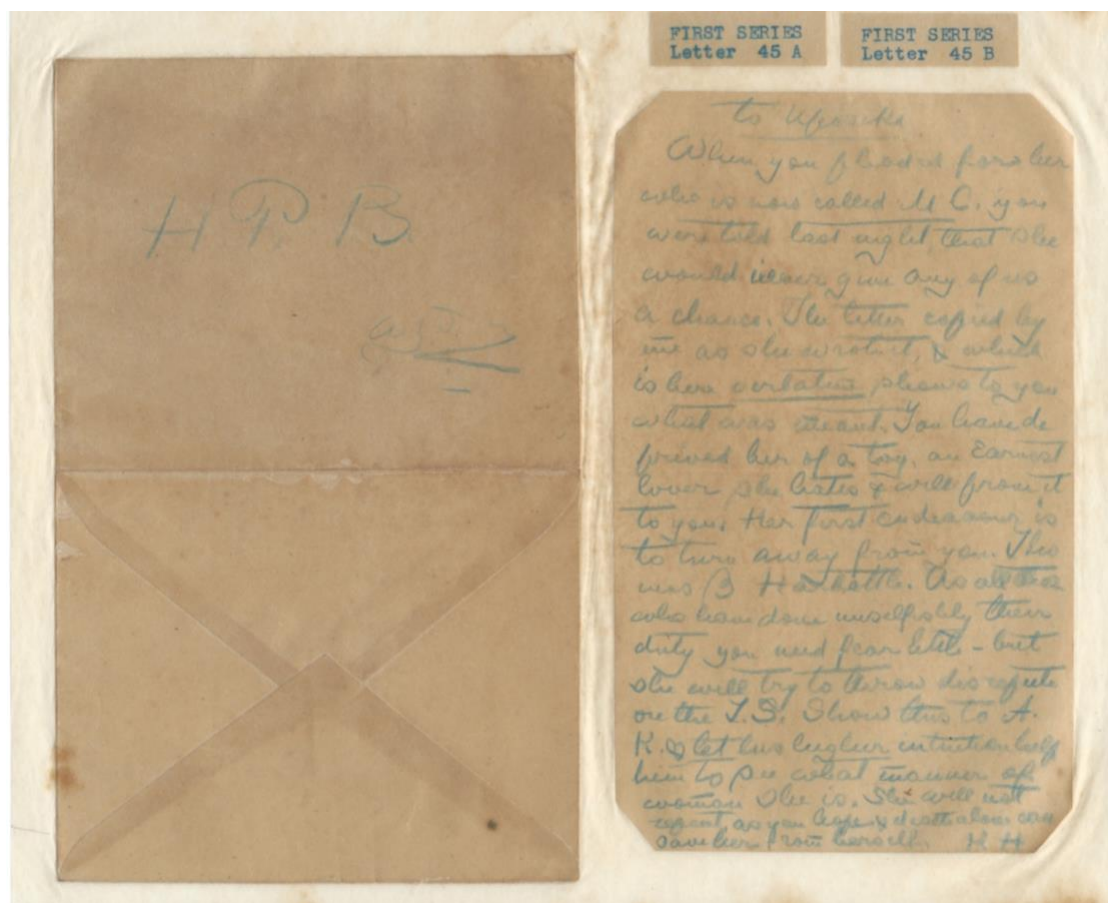 FIRST SERIES
Letter 45 A
FIRST SERIES
Letter 45 B
H. P. B.
to Upasika
When you pleaded for her
who is now called M C. you
were told last night, that she
would never give any of us
a chance. The letter copied by
me as she wrote it, & which
is here verbatim, shows to you
what was meant. You have de
prived her of a toy, an Earnest
lover she hates & will prove it
to you. Her first endeavour is
to turn away from you.
B Harbottle. As all those
who have done unselfishly their
duty you need fear little – but
she will try to throw disrepute
on the T.S. Show this to A.
K. & let his higher intuition help
him to see what manner of
woman she is. She will not
repent as you hope & death alone can
save her from herself. K H